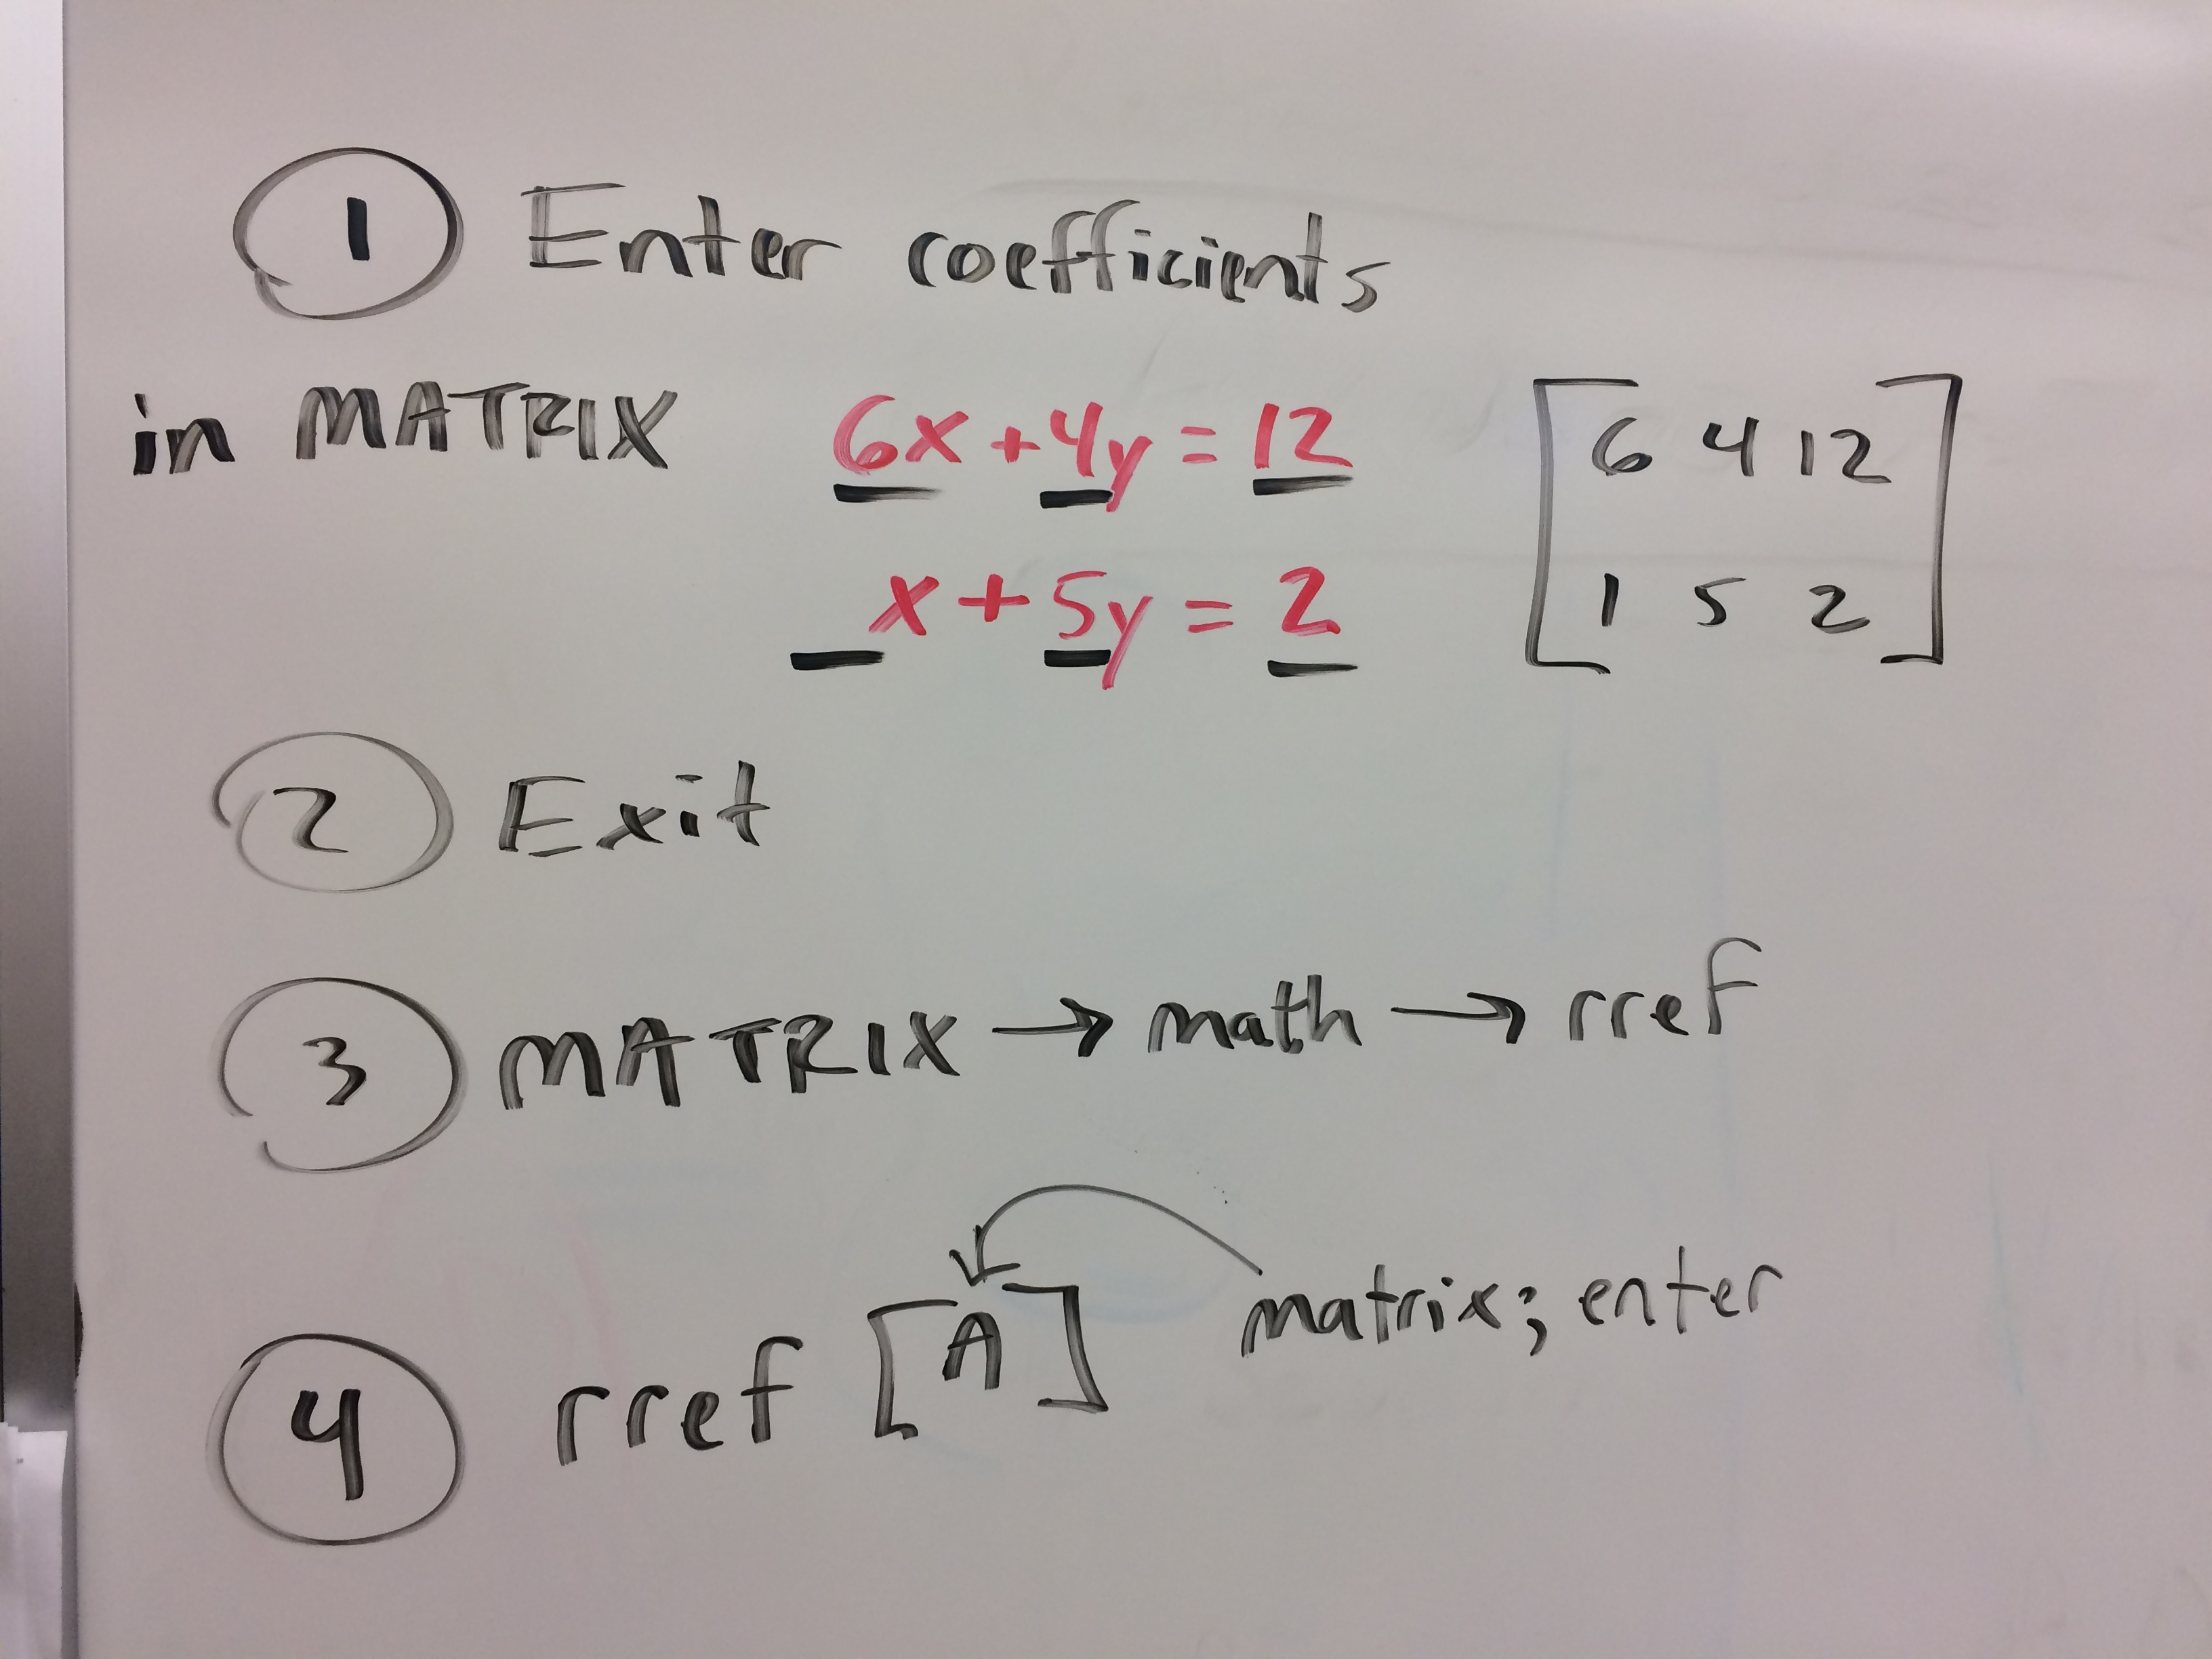 1 Enter coefficients
in MATRIX 6x + 4y = 12 [6 4 12
x + 5y = 2 1 5 2]
2 Exit
3 MATRIX → math → rref
4 rref [A] matrix; enter